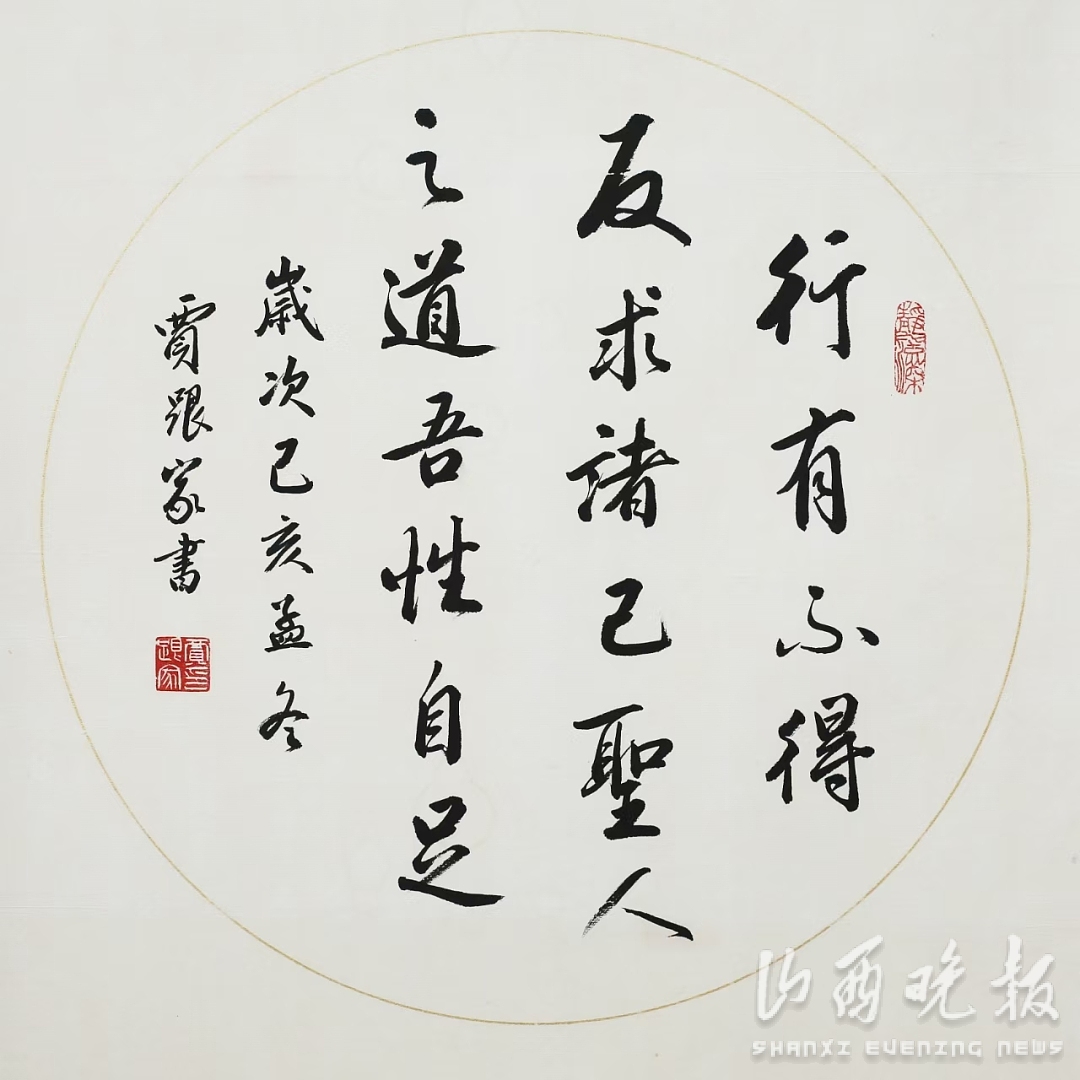 行有不得
反求諸己聖人
之道吾性自足
歲次己亥孟冬
賈跟家書
山西晚报
SHANXI EVENING NEWS